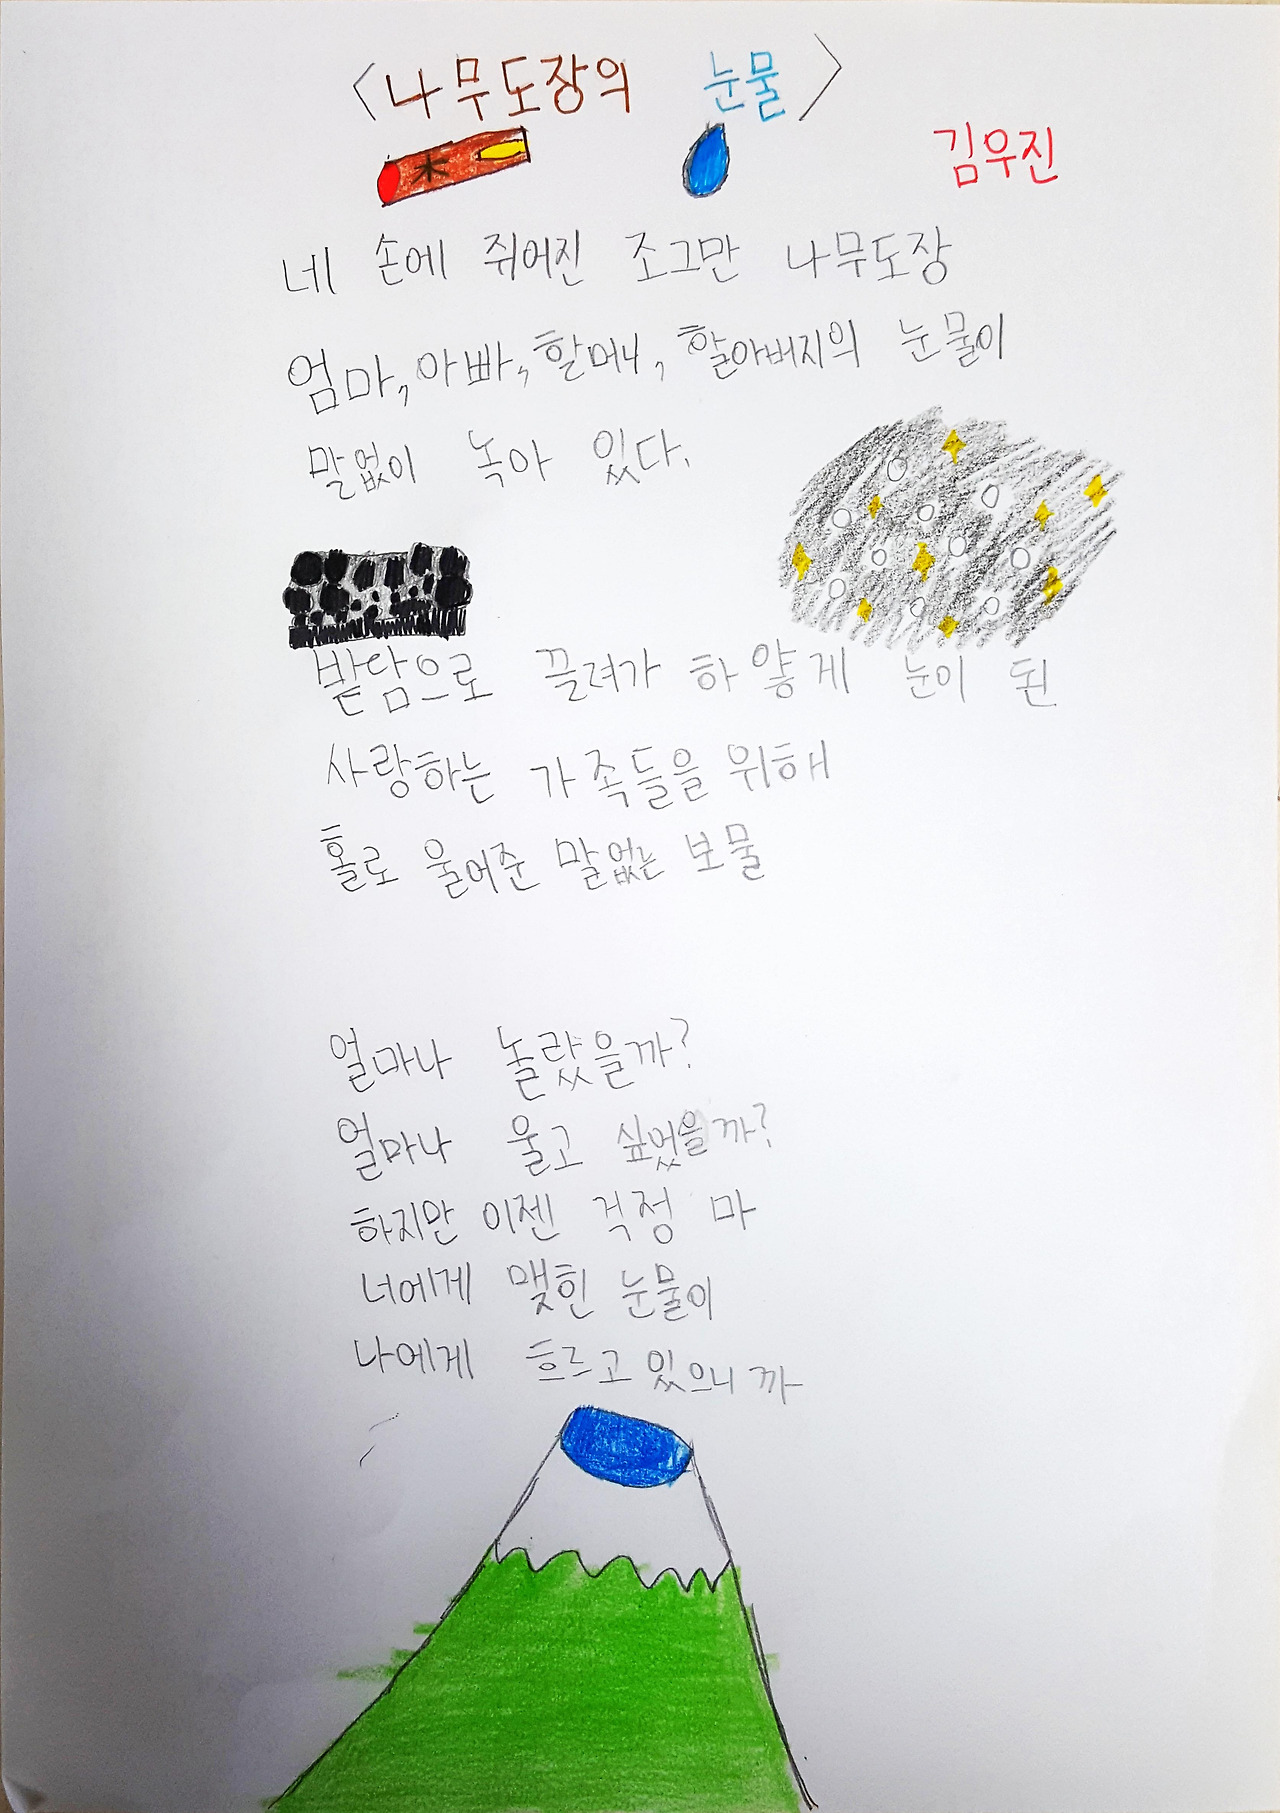 <나무도장의 눈물>
김우진
木
네 손에 쥐어진 조그만 나무도장
엄마, 아빠, 할머니, 할아버지의 눈물이
말없이 녹아 있다.
밭담으로 끌려가 하얗게 눈이 된
사랑하는 가족들을 위해
홀로 울어준 말없는 보물
얼마나 놀랐을까?
얼마나 울고 싶었을까?
하지만 이젠 걱정 마
너에게 맺힌 눈물이
나에게 흐르고 있으니까